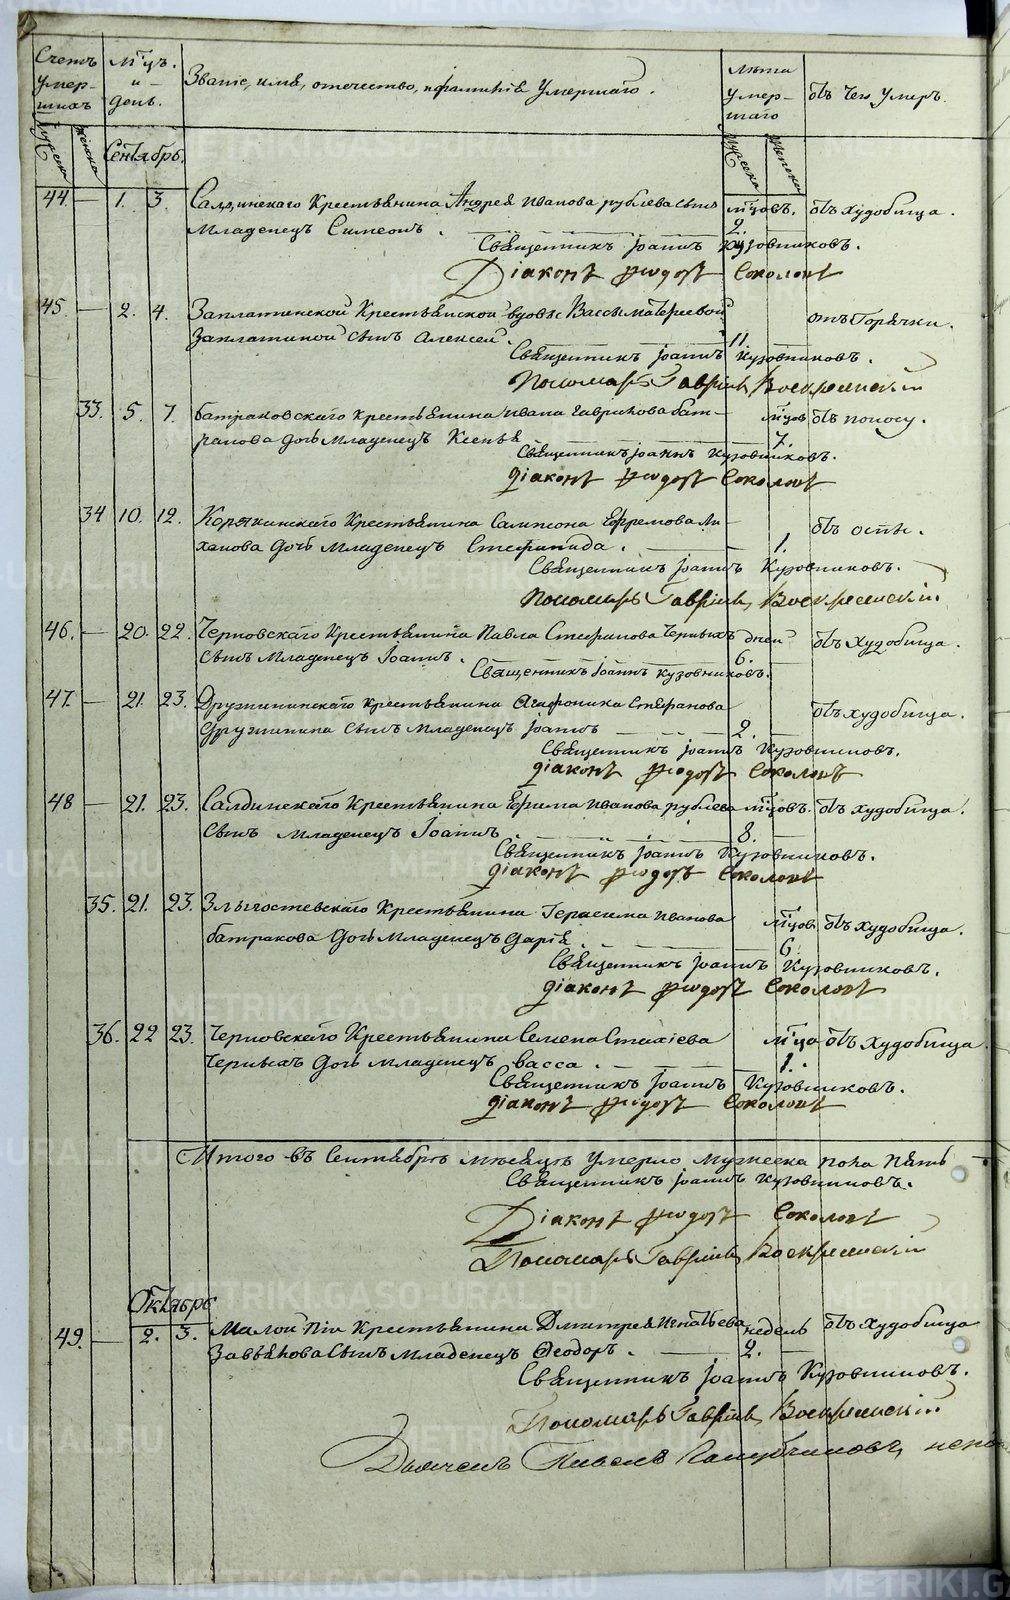 Счетъ умер-шихъ
М-цъ. и день.
Званіе, имя, отечество, и фамилія Умершаго.
Лѣта умер-шаго
Отъ чего умеръ.
Мужеска
Женска
Сентябрь.
Мужеска
Женска
44. — 1. 3. Салдинскаго Крестьянина Андрея Иванова рублева сынъ м-цовъ. отъ худобища.
Младенецъ Симеонъ. 2.
Священникъ Іоаннъ Кузовниковъ.
Діаконъ Ѳеодотъ Соколовъ
45. — 2. 4. Заплатинской Крестьянской вдовы Вассы матѳеевой отъ Горячки.
Заплатиной сынъ Алексей. 11.
Священникъ Іоаннъ Кузовниковъ.
Пономарь Гавріилъ Воскресенскій
33. 5. 7. батраковскаго Крестьянина Ивана Гаврилова бат- м-цов отъ поносу.
ракова дочь Младенецъ Ксенья 7.
Священникъ Іоаннъ Кузовниковъ.
діаконъ Ѳеодотъ Соколовъ
34 10. 12. Корякинскаго Крестьянина Сампсона Ефремова Ли- отъ оспы.
ханова дочь Младенецъ Стефанида. 1.
Священникъ Іоаннъ Кузовниковъ.
Пономарь Гавріилъ Воскресенскій
46. — 20. 22. Черновскаго Крестьянина Павла Стефанова Черныхъ дней отъ худобища.
сынъ Младенецъ Іоаннъ. 6.
Священникъ Іоаннъ Кузовниковъ.
47. — 21. 23. Дружининскаго Крестьянина Агафоника Стефанова отъ худобища.
дружинина сынъ Младенецъ Іоаннъ 2.
Священникъ Іоаннъ Кузовниковъ.
діаконъ Ѳеодотъ Соколовъ
48 — 21. 23. Салдинскаго Крестьянина Ефима Иванова рублева м-цовъ. отъ худобища.
сынъ Младенецъ Іоаннъ. 8.
Священникъ Іоаннъ Кузовниковъ.
діаконъ Ѳеодотъ Соколовъ
35. 21. 23. Злыгостевскаго Крестьянина Герасима Иванова м-цов отъ худобища.
батракова дочь Младенецъ Дарія. 6.
Священникъ Іоаннъ Кузовниковъ.
діаконъ Ѳеодотъ Соколовъ
36. 22 23. Черновскаго Крестьянина Семена Стахіева м-ца отъ худобища.
Черныхъ дочь Младенецъ васса. 1.
Священникъ Іоаннъ Кузовниковъ.
діаконъ Ѳеодотъ Соколовъ
Итого въ Сентябрѣ мѣсяцѣ умерло Мужеска пола пять
Священникъ Іоаннъ Кузовниковъ.
Діаконъ Ѳеодотъ Соколовъ
Пономарь Гавріилъ Воскресенскій
Октябрь
49. — 2. 3. Малой Крестьянина Дмитрея Игнатьева недель отъ худобища
Завьялова сынъ Младенецъ Ѳеодоръ. 2.
Священникъ Іоаннъ Кузовниковъ.
Пономарь Гавріилъ Воскресенскій
Дьячекъ
METRIKI.GASO-URAL.RU